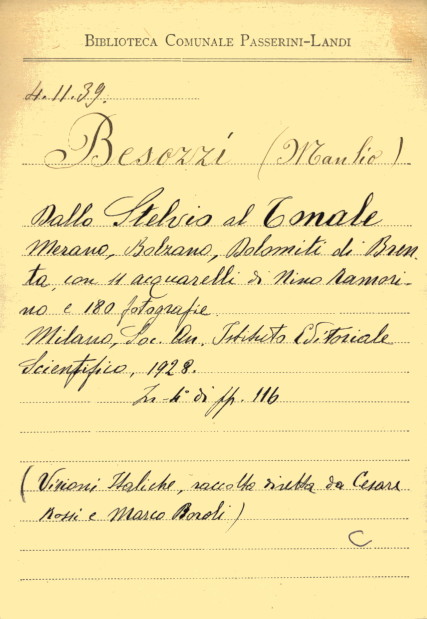 BIBLIOTECA COMUNALE PASSERINI-LANDI
4.11.39.
Besozzi (Manlio)
Dallo Stelvio al Tonale
Merano, Bolzano, Dolomiti di Bren
ta, con 4 acquarelli di Nino Ramori-
no e 180 fotografie.
Milano, Soc. An. Istituto Editoriale
Scientifico, 1928.
In-4° di pp. 116
(Visioni Italiche, raccolta diretta da Cesare
Rossi e Marco Boroli)
C